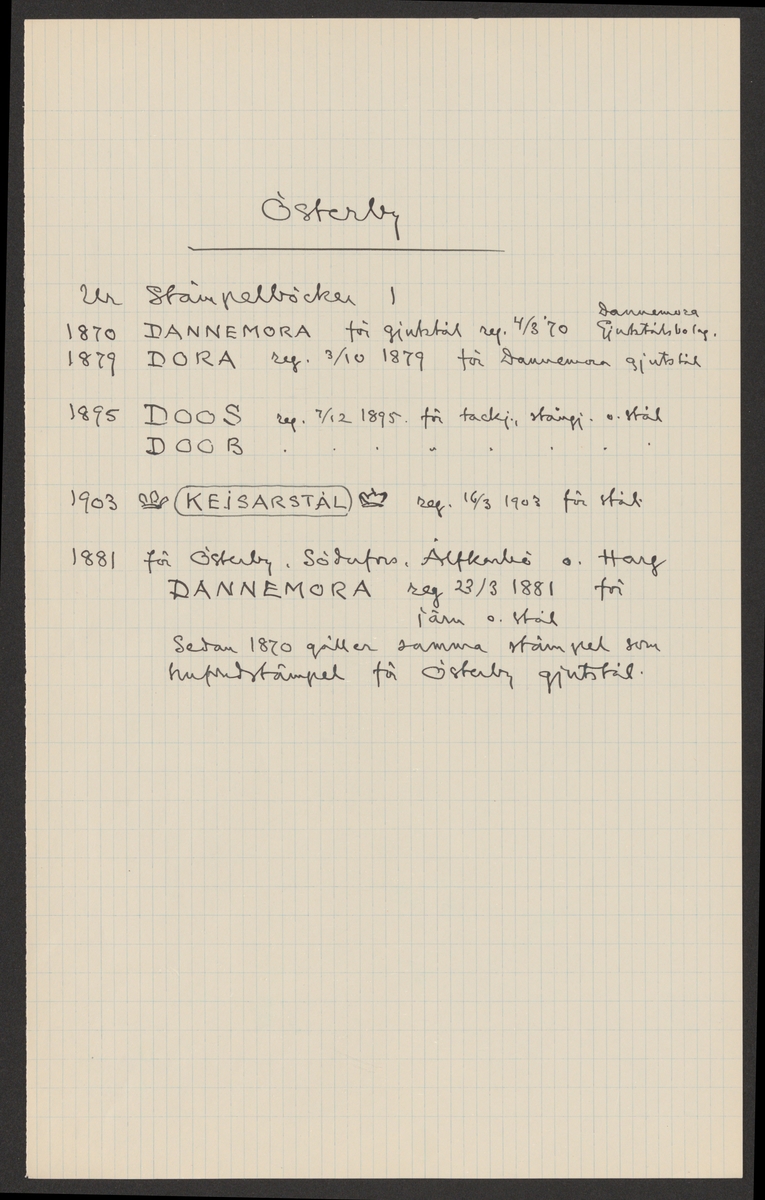 Österby
Ur Stämpelböcker 1
1870 DANNEMORA för gjutstål reg. 4/3 '70 Dannemora Gjutstålsbolag.
1879 DORA reg. 3/10 1879 för Dannemora gjutstål
1895 DOOS reg. 7/12 1895. för tackj., stångj. o. stål
DOOB . . . " . . .
1903 KEJSARSTÅL reg. 16/3 1903 för stål.
1881 för Österby, Söderfors, Älfkarleö o. Harg
DANNEMORA reg 23/3 1881 för
järn o. stål
Sedan 1870 gäller samma stämpel som
hufvudstämpel för Österby gjutstål.